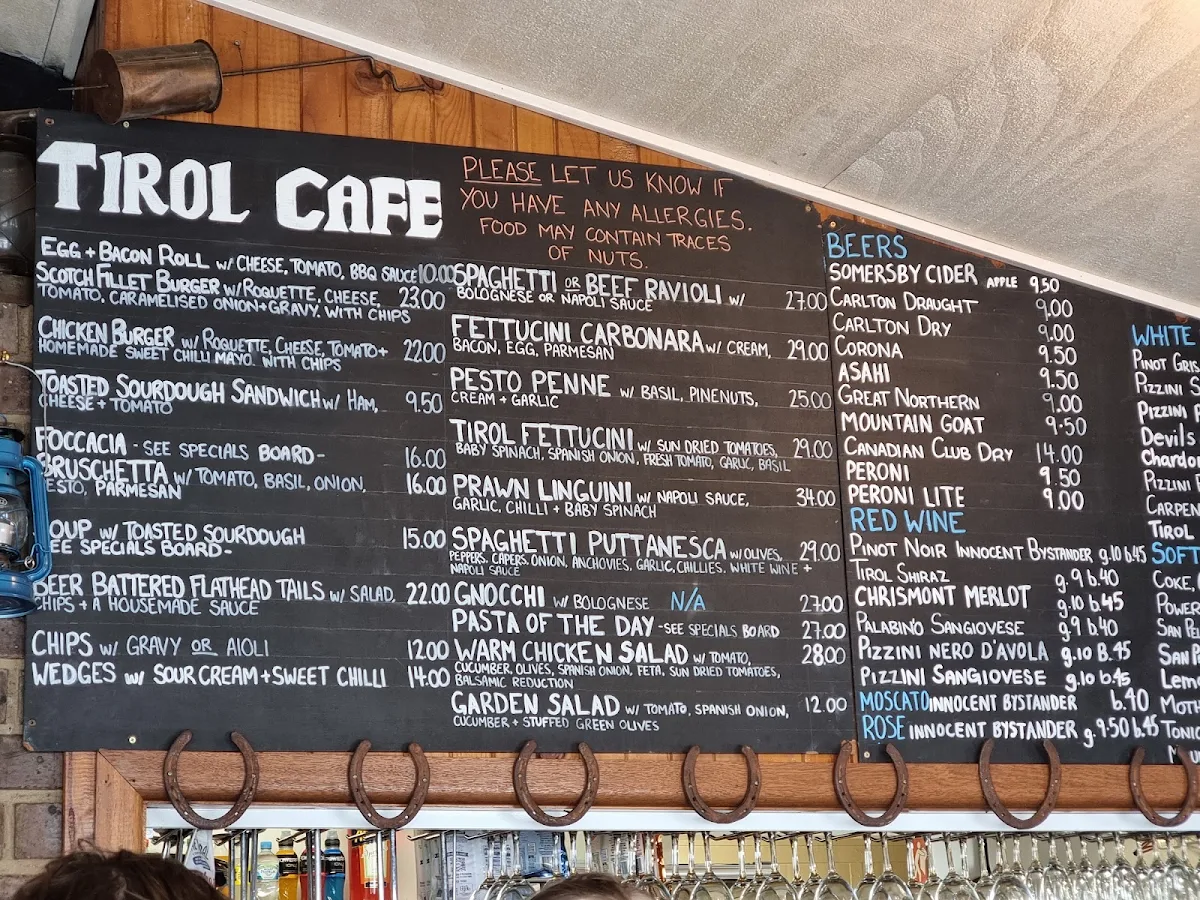 TIROL CAFE
PLEASE LET US KNOW IF
YOU HAVE ANY ALLERGIES.
FOOD MAY CONTAIN TRACES
OF NUTS.
EGG + BACON ROLL W/ CHEESE, TOMATO, BBQ SAUCE 10.00
SCOTCH FILLET BURGER W/ ROQUETTE, CHEESE, 23.00
TOMATO, CARAMELISED ONION + GRAVY. WITH CHIPS
CHICKEN BURGER W/ ROQUETTE, CHEESE, TOMATO + 22.00
HOMEMADE SWEET CHILLI MAYO. WITH CHIPS
TOASTED SOURDOUGH SANDWICH W/ HAM, 9.50
CHEESE + TOMATO
FOCCACIA - SEE SPECIALS BOARD - 16.00
BRUSCHETTA W/ TOMATO, BASIL, ONION, 16.00
ESTO, PARMESAN
OUP W/ TOASTED SOURDOUGH 15.00
EE SPECIALS BOARD -
BEER BATTERED FLATHEAD TAILS W/ SALAD, 22.00
CHIPS + A HOUSEMADE SAUCE
CHIPS W/ GRAVY OR AIOLI 12.00
WEDGES W/ SOUR CREAM + SWEET CHILLI 14.00
SPAGHETTI OR BEEF RAVIOLI W/ 27.00
BOLOGNESE OR NAPOLI SAUCE
FETTUCINI CARBONARA W/ CREAM, 29.00
BACON, EGG, PARMESAN
PESTO PENNE W/ BASIL, PINENUTS, 25.00
CREAM + GARLIC
TIROL FETTUCINI W/ SUN DRIED TOMATOES, 29.00
BABY SPINACH, SPANISH ONION, FRESH TOMATO, GARLIC, BASIL
PRAWN LINGUINI W/ NAPOLI SAUCE, 34.00
GARLIC, CHILLI + BABY SPINACH
SPAGHETTI PUTTANESCA W/ OLIVES, 29.00
PEPPERS, CAPERS, ONION, ANCHOVIES, GARLIC, CHILLIES, WHITE WINE +
NAPOLI SAUCE
GNOCCHI W/ BOLOGNESE N/A 27.00
PASTA OF THE DAY - SEE SPECIALS BOARD 27.00
WARM CHICKEN SALAD W/ TOMATO, 28.00
CUCUMBER, OLIVES, SPANISH ONION, FETA, SUN DRIED TOMATOES,
BALSAMIC REDUCTION
GARDEN SALAD W/ TOMATO, SPANISH ONION, 12.00
CUCUMBER + STUFFED GREEN OLIVES
BEERS
SOMERSBY CIDER APPLE 9.50
CARLTON DRAUGHT 9.00
CARLTON DRY 9.00
CORONA 9.50
ASAHI 9.50
GREAT NORTHERN 9.00
MOUNTAIN GOAT 9.50
CANADIAN CLUB DRY 14.00
PERONI 9.50
PERONI LITE 9.00
RED WINE
PINOT NOIR INNOCENT BYSTANDER g.10 b.45
TIROL SHIRAZ g.9 b.40
CHRISMONT MERLOT g.10 b.45
PALABINO SANGIOVESE g.9 b.40
PIZZINI NERO D'AVOLA g.10 B.45
PIZZINI SANGIOVESE g.10 b.45
MOSCATO INNOCENT BYSTANDER b.40
ROSE INNOCENT BYSTANDER g.9.50 b.45
WHITE
PINOT GRIS
PIZZINI
PIZZINI
Devils
Chardon
PIZZINI
CARPEN
TIROL
SOFT
COKE,
POWER
SAN PE
SAN P
Lemo
MOTH
TONIC